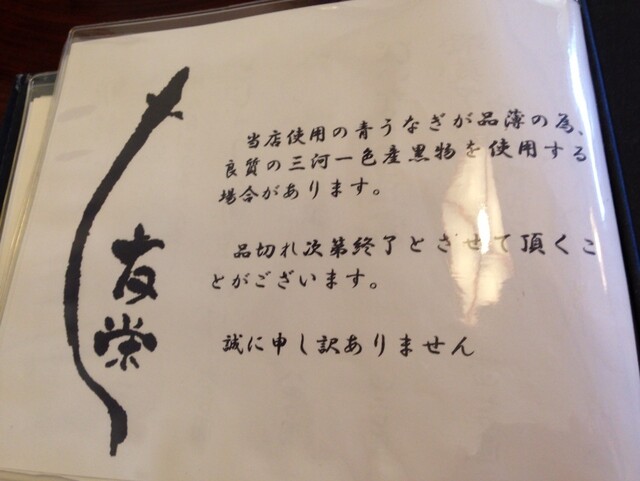 当店使用の青うなぎが品薄の為、
良質の三河一色産黒物を使用する
場合があります。
品切れ次第終了とさせて頂くこ
とがございます。
誠に申し訳ありません
友栄